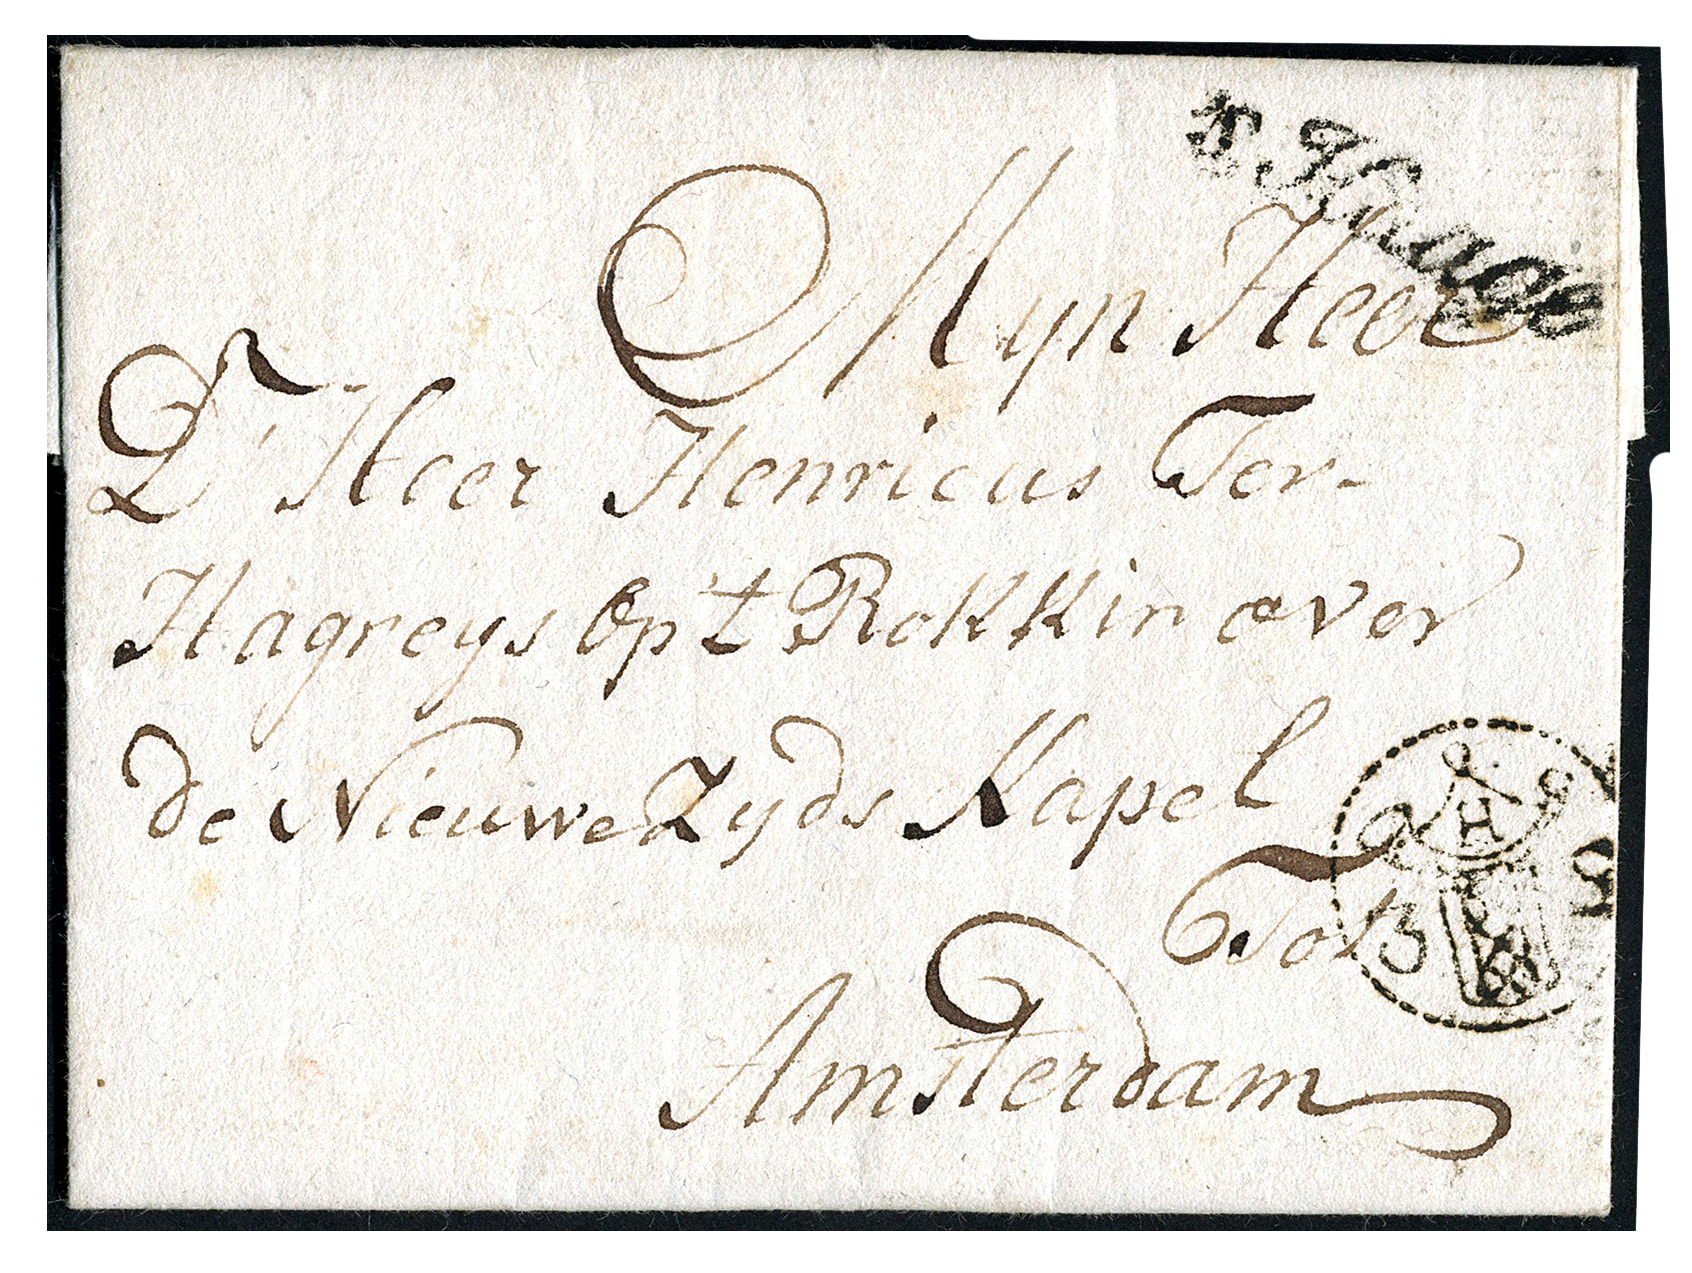 s Haage
Mijn Heer
D' Heer Henricus Ter-
Hagreys op 't Rokkin over
de Nieuwe Zyds Kapel
H
3 S
Tot
Amsterdam